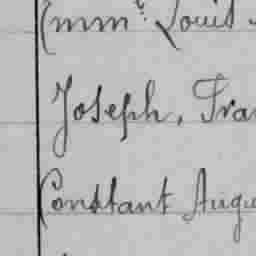 Emm.e Louis
Joseph, Fra
Constant Augu